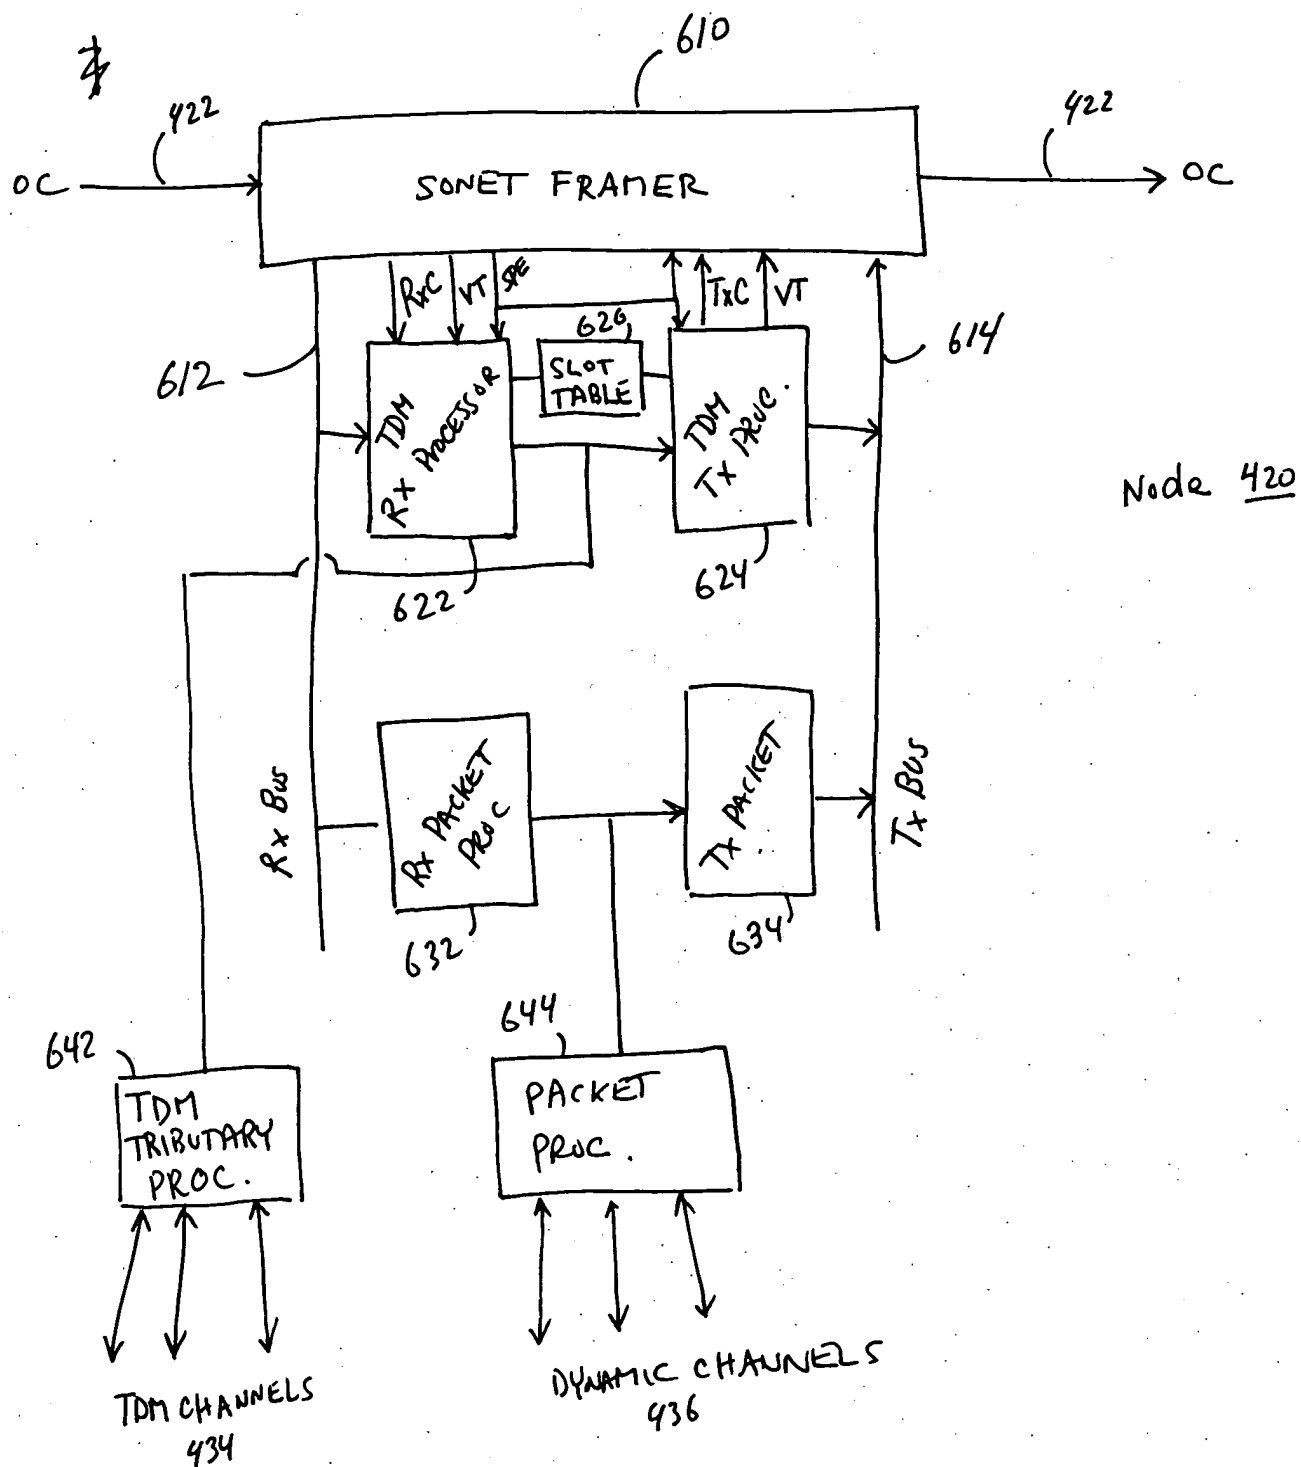 610
422
422
OC
SONET FRAMER
OC
RxC
VT
SPE
TxC
VT
626
612
614
SLOT
TABLE
TDM
RX PROCESSOR
TDM
TX PROC.
Node 420
622
624
Rx Bus
Rx PACKET
PROC
Tx PACKET
Tx BUS
632
634
642
644
TDM
TRIBUTARY
PROC.
PACKET
PROC.
TDM CHANNELS
434
DYNAMIC CHANNELS
436